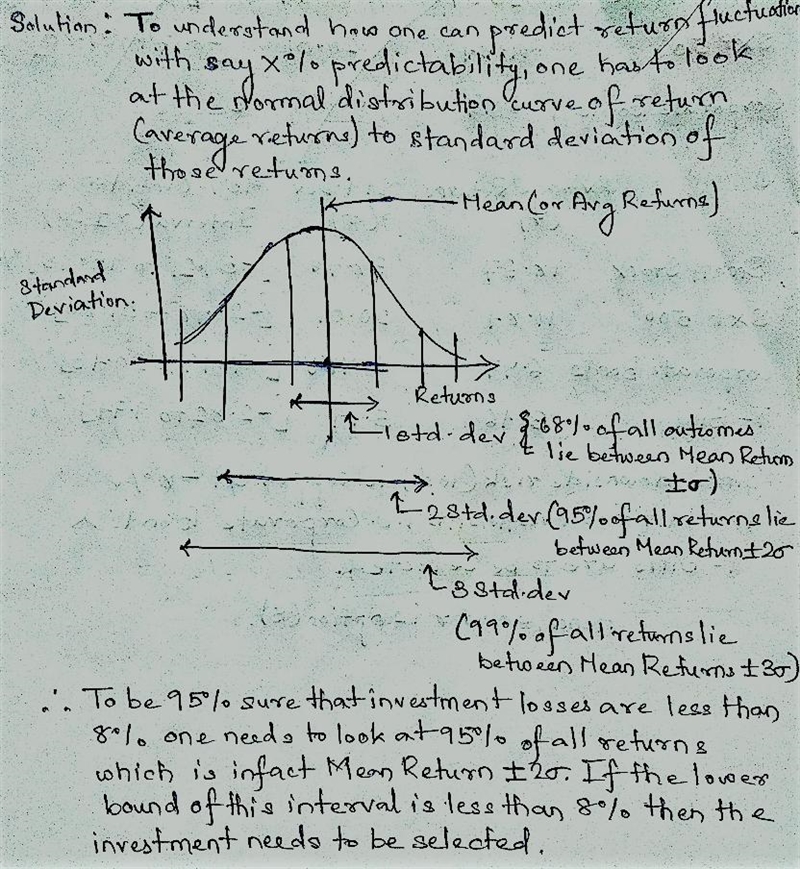 Solution: To understand how one can predict return fluctuation
with say X% predictability, one has to look
at the Normal distribution curve of return
(average returns) to standard deviation of
those returns.
Mean (or Avg Returns)
Standard
Deviation.
Returns
1 std. dev {68% of all outcomes
lie between Mean Return
±σ)
2 Std. dev (95% of all returns lie
between Mean Return ± 2σ
3 Std. dev
(99% of all returns lie
between Mean Returns ± 3σ)
∴ To be 95% sure that investment losses are less than
8% one needs to look at 95% of all returns
which is infact Mean Return ± 2σ. If the lower
bound of this interval is less than 8% then the
investment needs to be selected.